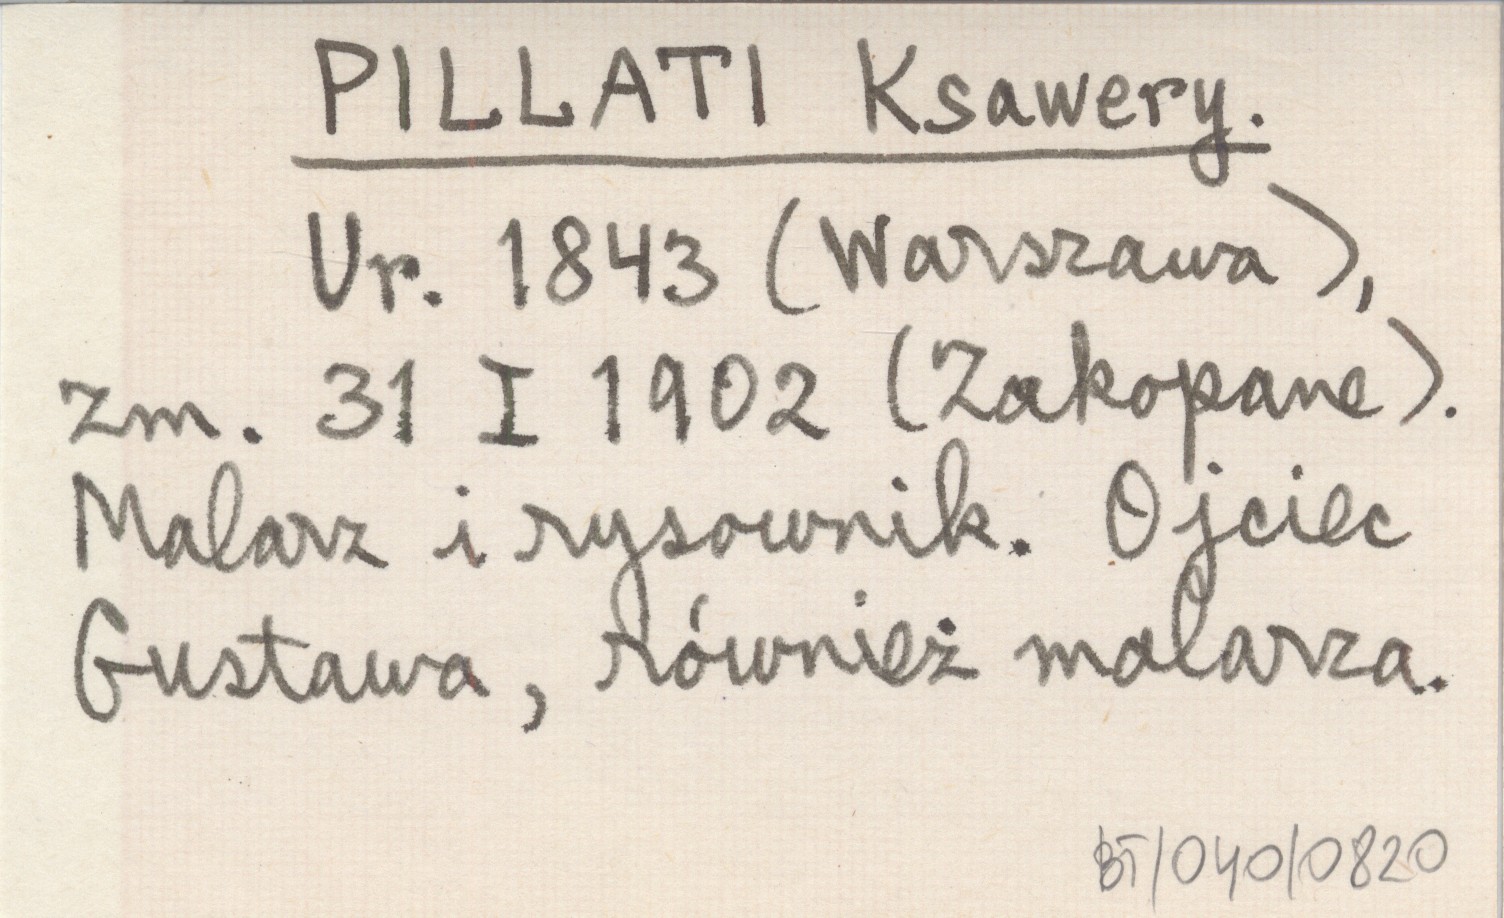 PILLATI Ksawery.
Ur. 1843 (Warszawa),
zm. 31 I 1902 (Zakopane).
Malarz i rysownik. Ojciec
Gustawa, również malarza.
BT/040/0820